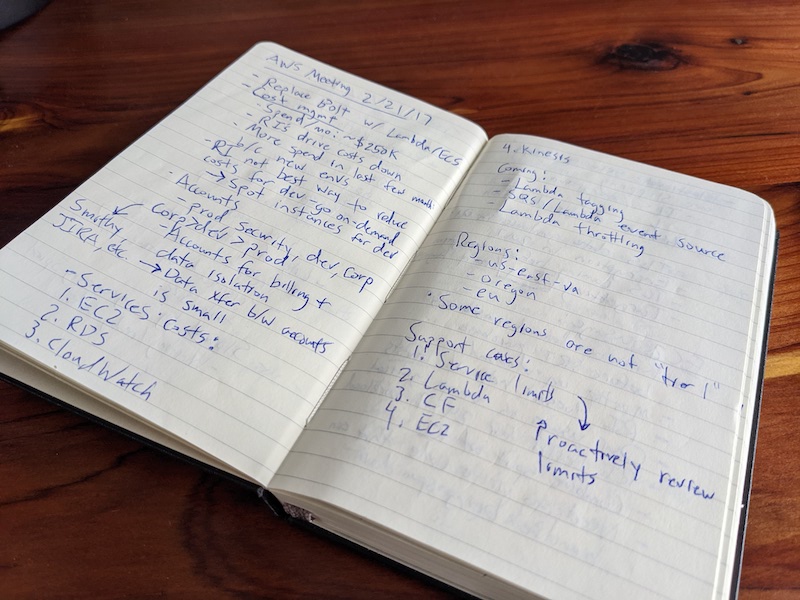 AWS Meeting 2/21/17
- Replace Bolt w/ Lambda/ECS
- Cost mgmt
- Spend/mo: ~$250K
- RIs drive costs down
- More spend in last few months
b/c new envs
- RI not best way to reduce
costs for dev - go on-demand
→ Spot instances for dev
- Accounts
- prod, security, dev, corp
Corp > dev > prod
- Accounts for billing +
data isolation
→ Data xfer b/w accounts
is small
Smithy
JIRA, etc.
- Services: costs:
1. EC2
2. RDS
3. CloudWatch
4. Kinesis
Coming:
- Lambda tagging
- SQS/Lambda event source
- Lambda throttling
Regions:
- us-east-va
- oregon
- eu
· Some regions are not "tier 1"
Support cases:
1. Service limits
2. Lambda
3. CF
4. EC2
Proactively review
limits